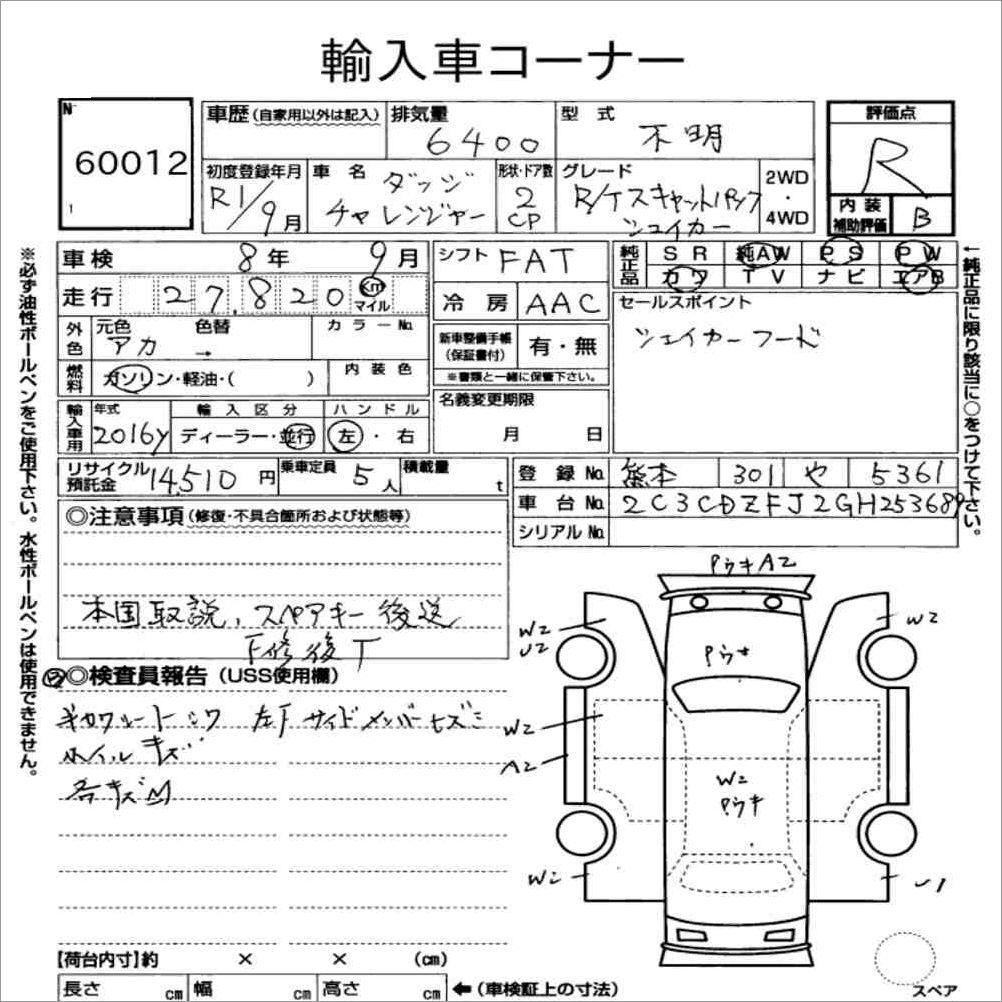 輸入車コーナー
N
60012
1
車歴 (自家用以外は記入)
排気量
6400
型 式
不明
評価点
R
初度登録年月
R1/9月
車 名
ダッジ
チャレンジャー
形状・ドア数
2
CP
グレード
R/Tスキャットパック
シェイカー
2WD
・
4WD
内 装
補助評価
B
車検 8年 9月
シフト FAT
純正品
SR 純AW PS PW
カワ TV ナビ エアB
走行 27,820 Km
マイル
冷房 AAC
セールスポイント
シェイカーフード
外色
元色 色替
アカ →
カラーNo.
新車整備手帳
(保証書付)
有・無
※書類と一緒に保管下さい。
燃料
ガソリン・軽油・( )
内装色
名義変更期限
月 日
輸入車用
年式
2016y
輸入区分
ディーラー・並行
ハンドル
左・右
リサイクル
預託金
14,510円
乗車定員 5人
積載量 t
登録No. 熊本 301 や 5361
車台No. 2C3CDZFJ2GH253689
シリアルNo.
◎注意事項 (修復・不具合箇所および状態等)
本国取説、スペアキー後送
F修復T
◎検査員報告 (USS使用欄)
左下サイドメンバーキズ
ホイルキズ
各キズM
PウキA2
W2
U2
W2
Pウキ
W2
A2
W2
Pウキ
W2
U1
スペア
【荷台内寸】約 × × (cm)
長さ cm 幅 cm 高さ cm ←(車検証上の寸法)
※必ず油性ボールペンをご使用下さい。水性ボールペンは使用できません。
↑純正品に限り該当に○をつけて下さい。